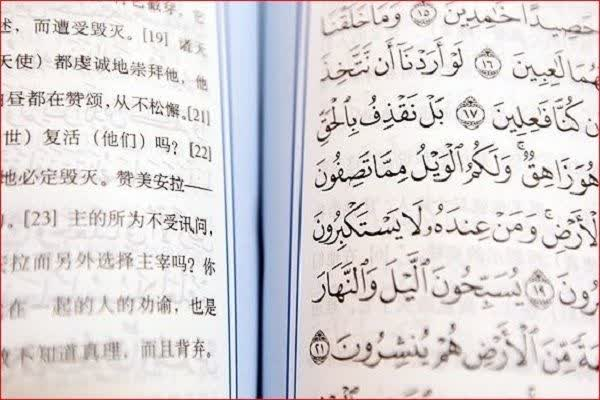 述，而遭受毁灭。[19] 诸天
天使）都虔诚地崇拜他，他
昼都在赞颂，从不松懈。[21]
世）复活（他们）吗？[22]
他必定毁灭。赞美安拉——
。[23] 主的所为不受讯问，
拉而另外选择主宰吗？你
在一起的人的劝谕，也是
不知道真理，而且背弃。
حَصِيدًا خَٰمِدِينَ ١٥ وَمَا خَلَقْنَا
لَٰعِبِينَ ١٦ لَوْ أَرَدْنَا أَن نَّتَّخِذَ
كُنَّا فَٰعِلِينَ ١٧ بَلْ نَقْذِفُ بِٱلْحَقِّ
هُوَ زَاهِقٌ ۚ وَلَكُمُ ٱلْوَيْلُ مِمَّا تَصِفُونَ
ٱلْأَرْضِ ۚ وَمَنْ عِندَهُۥ لَا يَسْتَكْبِرُونَ
١٩ يُسَبِّحُونَ ٱلَّيْلَ وَٱلنَّهَارَ
مِّنَ ٱلْأَرْضِ هُمْ يُنشِرُونَ ٢١